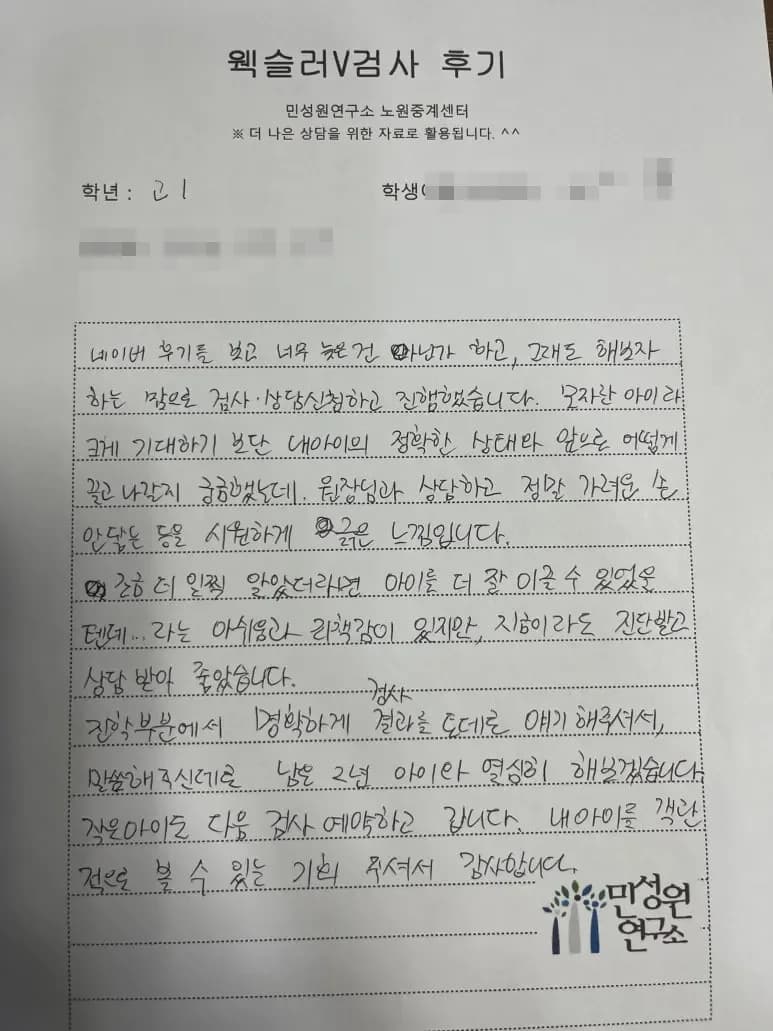 웩슬러V검사 후기
민성원연구소 노원중계센터
※ 더 나은 상담을 위한 자료로 활용됩니다. ^^
학년 : 고1
학생
네이버 후기를 보고 너무 늦은건 아닌가 하고, 그래도 해보자
하는 맘으로 검사·상담신청하고 진행했습니다. 모자란 아이라
크게 기대하기 보단 내아이의 정확한 상태와 앞으로 어떻게
끌고 나갈지 궁금했는데. 원장님과 상담하고 정말 가려운 손
안닿는 등을 시원하게 긁은 느낌입니다.
조금 더 일찍 알았더라면 아이를 더 잘 이끌 수 있었을
텐데... 라는 아쉬움과 죄책감이 있지만, 지금이라도 진단받고
상담 받아 좋았습니다.
검사
진학부분에서 명확하게 결과를 토대로 얘기 해주셔서,
말씀해주신대로 남은 2년 아이와 열심히 해보겠습니다.
작은아이도 다음 검사 예약하고 갑니다. 내아이를 객관
적으로 볼 수 있는 기회 주셔서 감사합니다.
민성원
연구소